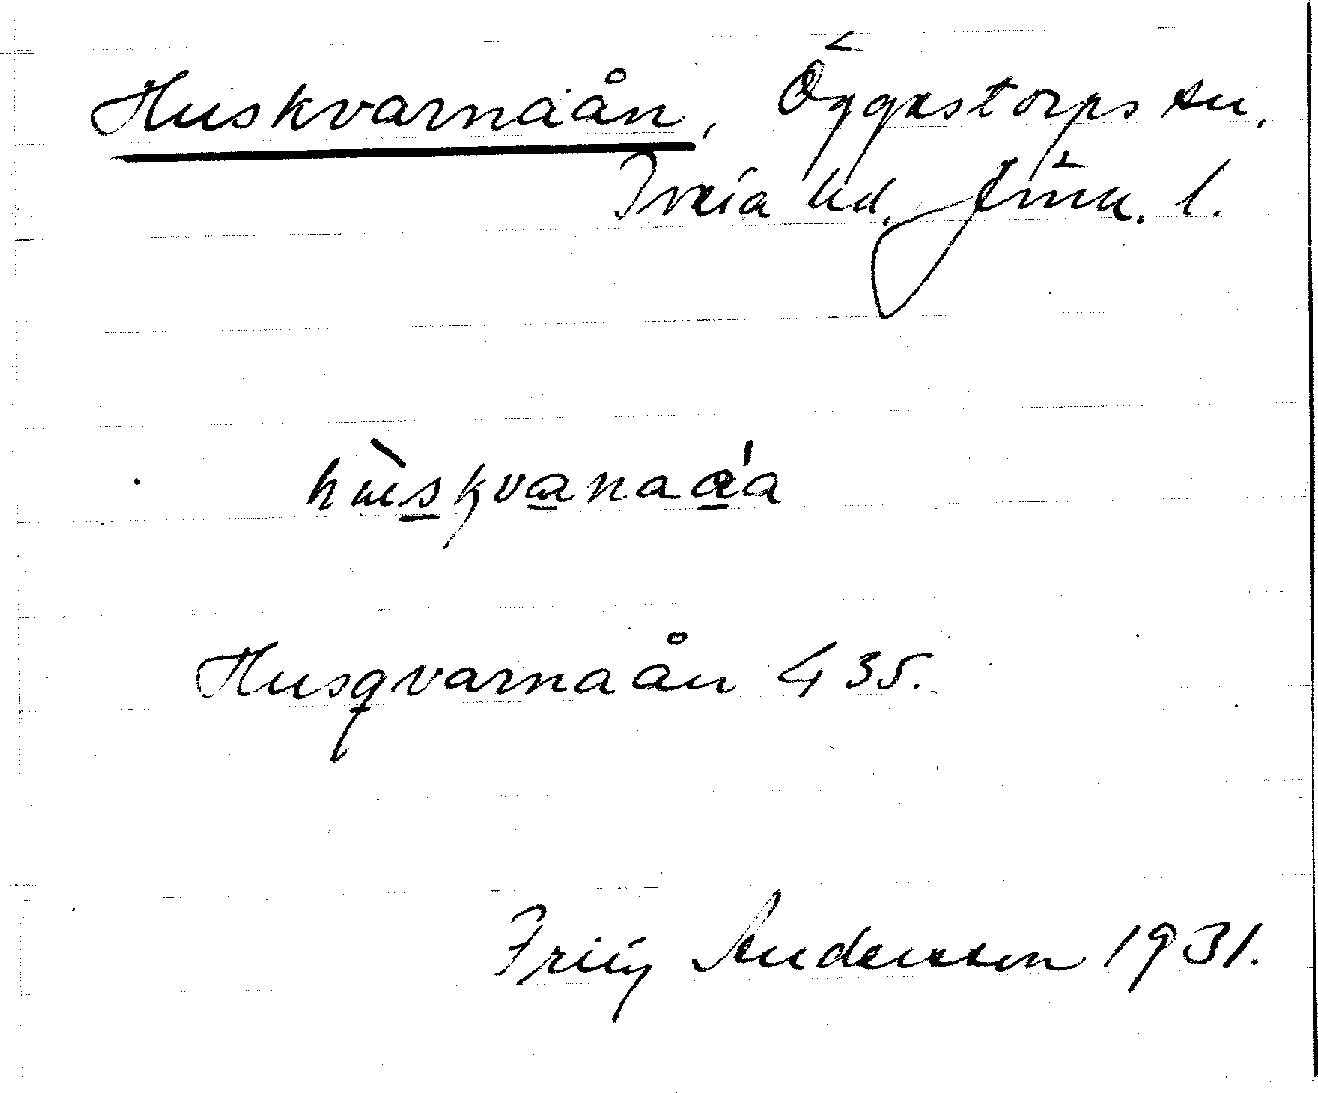 Huskvarnaån, Öggestorps sn,
Tveta hd, Jönk. l.
hùskvanaa̍a
Husqvarnaån 435.
Friry Andersson 1931.